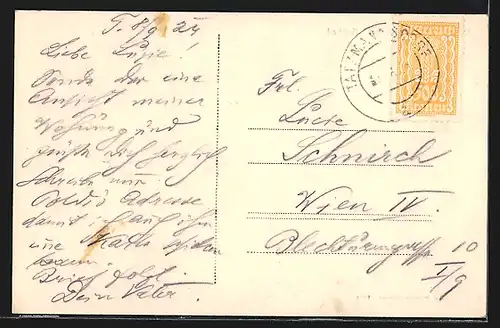 T. 8/9 24
Liebe Luzie!
Sende dir eine
Ansicht meiner
Wohnung und
grüße dich herzlich
Schreibe mir
Poldis Adresse
damit ich auch ihm
eine Karte schicken
kann.
Brief folgt.
Dein Vater.
TATZMANNSDORF
Frl.
Lucie
Schnirch
Wien IV.
Blechturmgasse 10
I/9